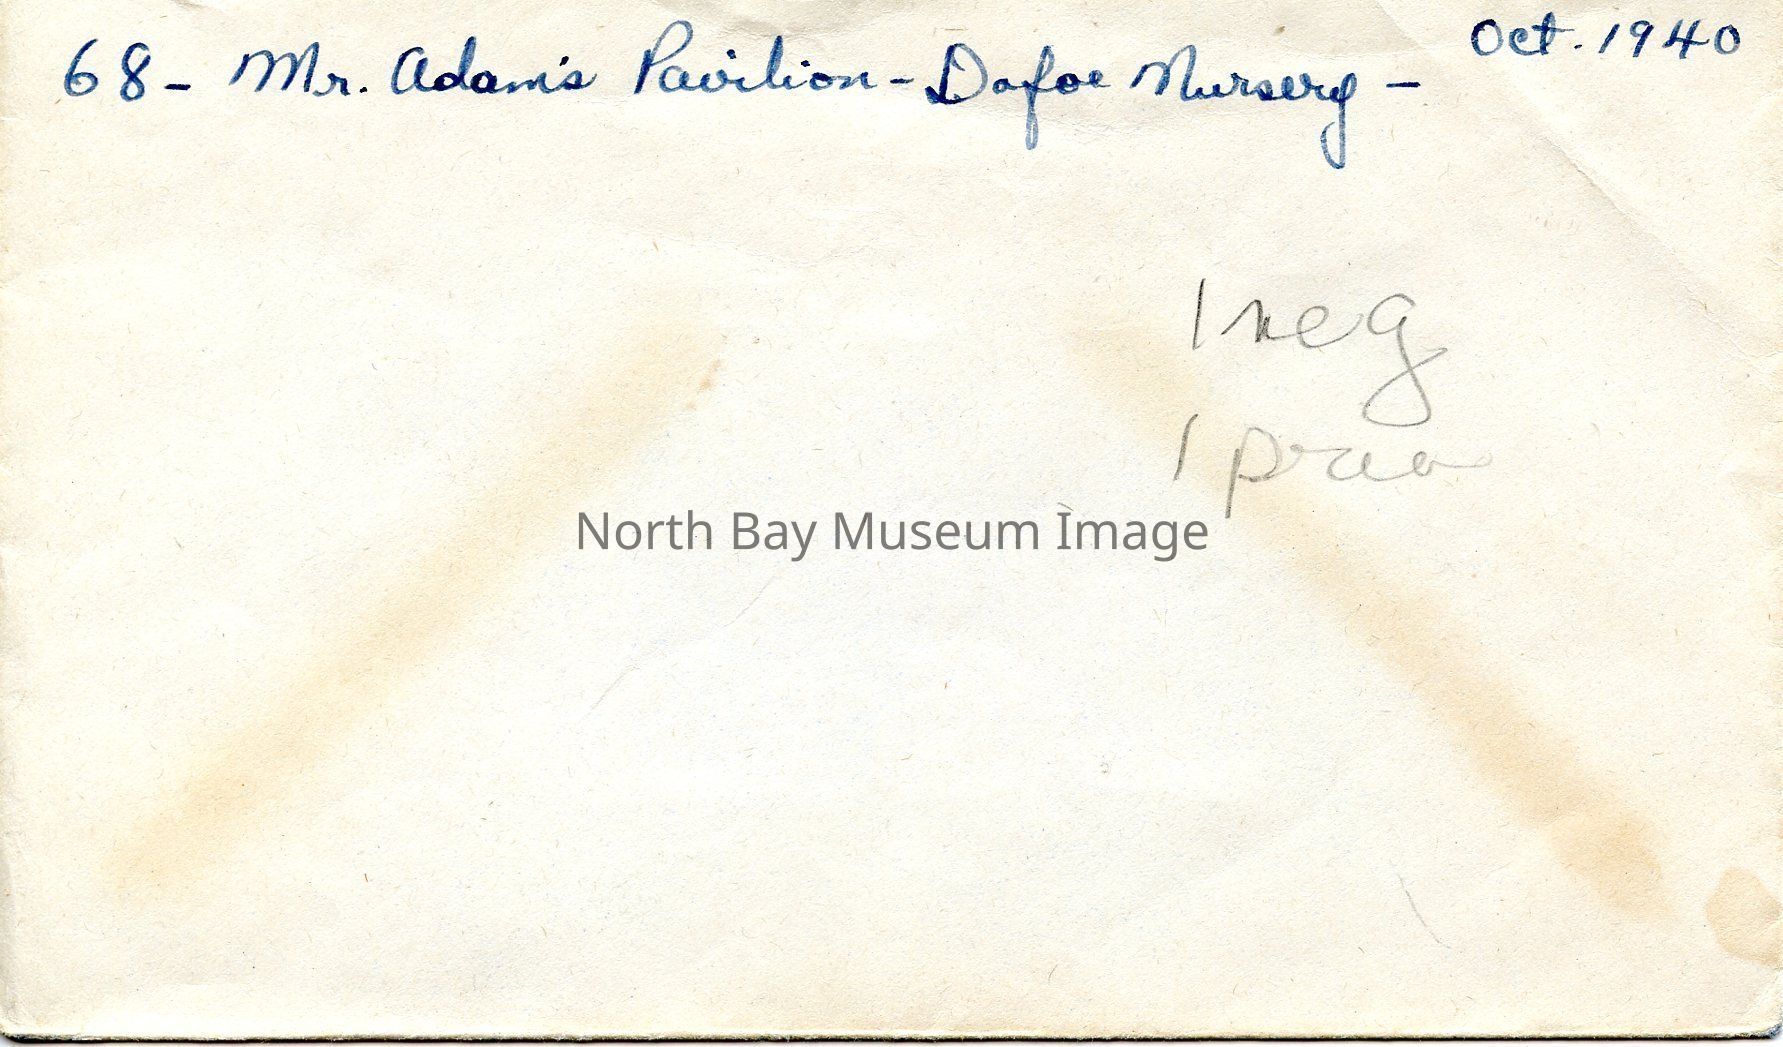 68- Mr. Adam's Pavilion - Dafoe Nursery - Oct. 1940
1 neg
1
North Bay Museum Image